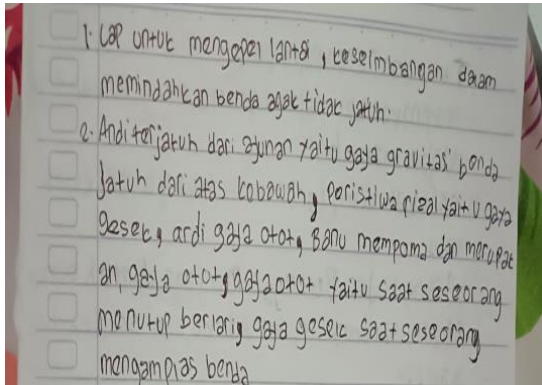 1. Lap untuk mengepel lantai, keseimbangan dalam
memindahkan benda agak tidak jatuh.
2. Andi terjatuh dari ayunan yaitu gaya gravitasi benda
Jatuh dari atas kobawah, poristiwa rizal yaitu gaya
gesek, ardi gaya otot, Banu mempoma dan merupak
an, gaya otot, gaya otot yaitu saat seseorang
monutup berlari, gaya gesek saat seseorang
mengamplas benda